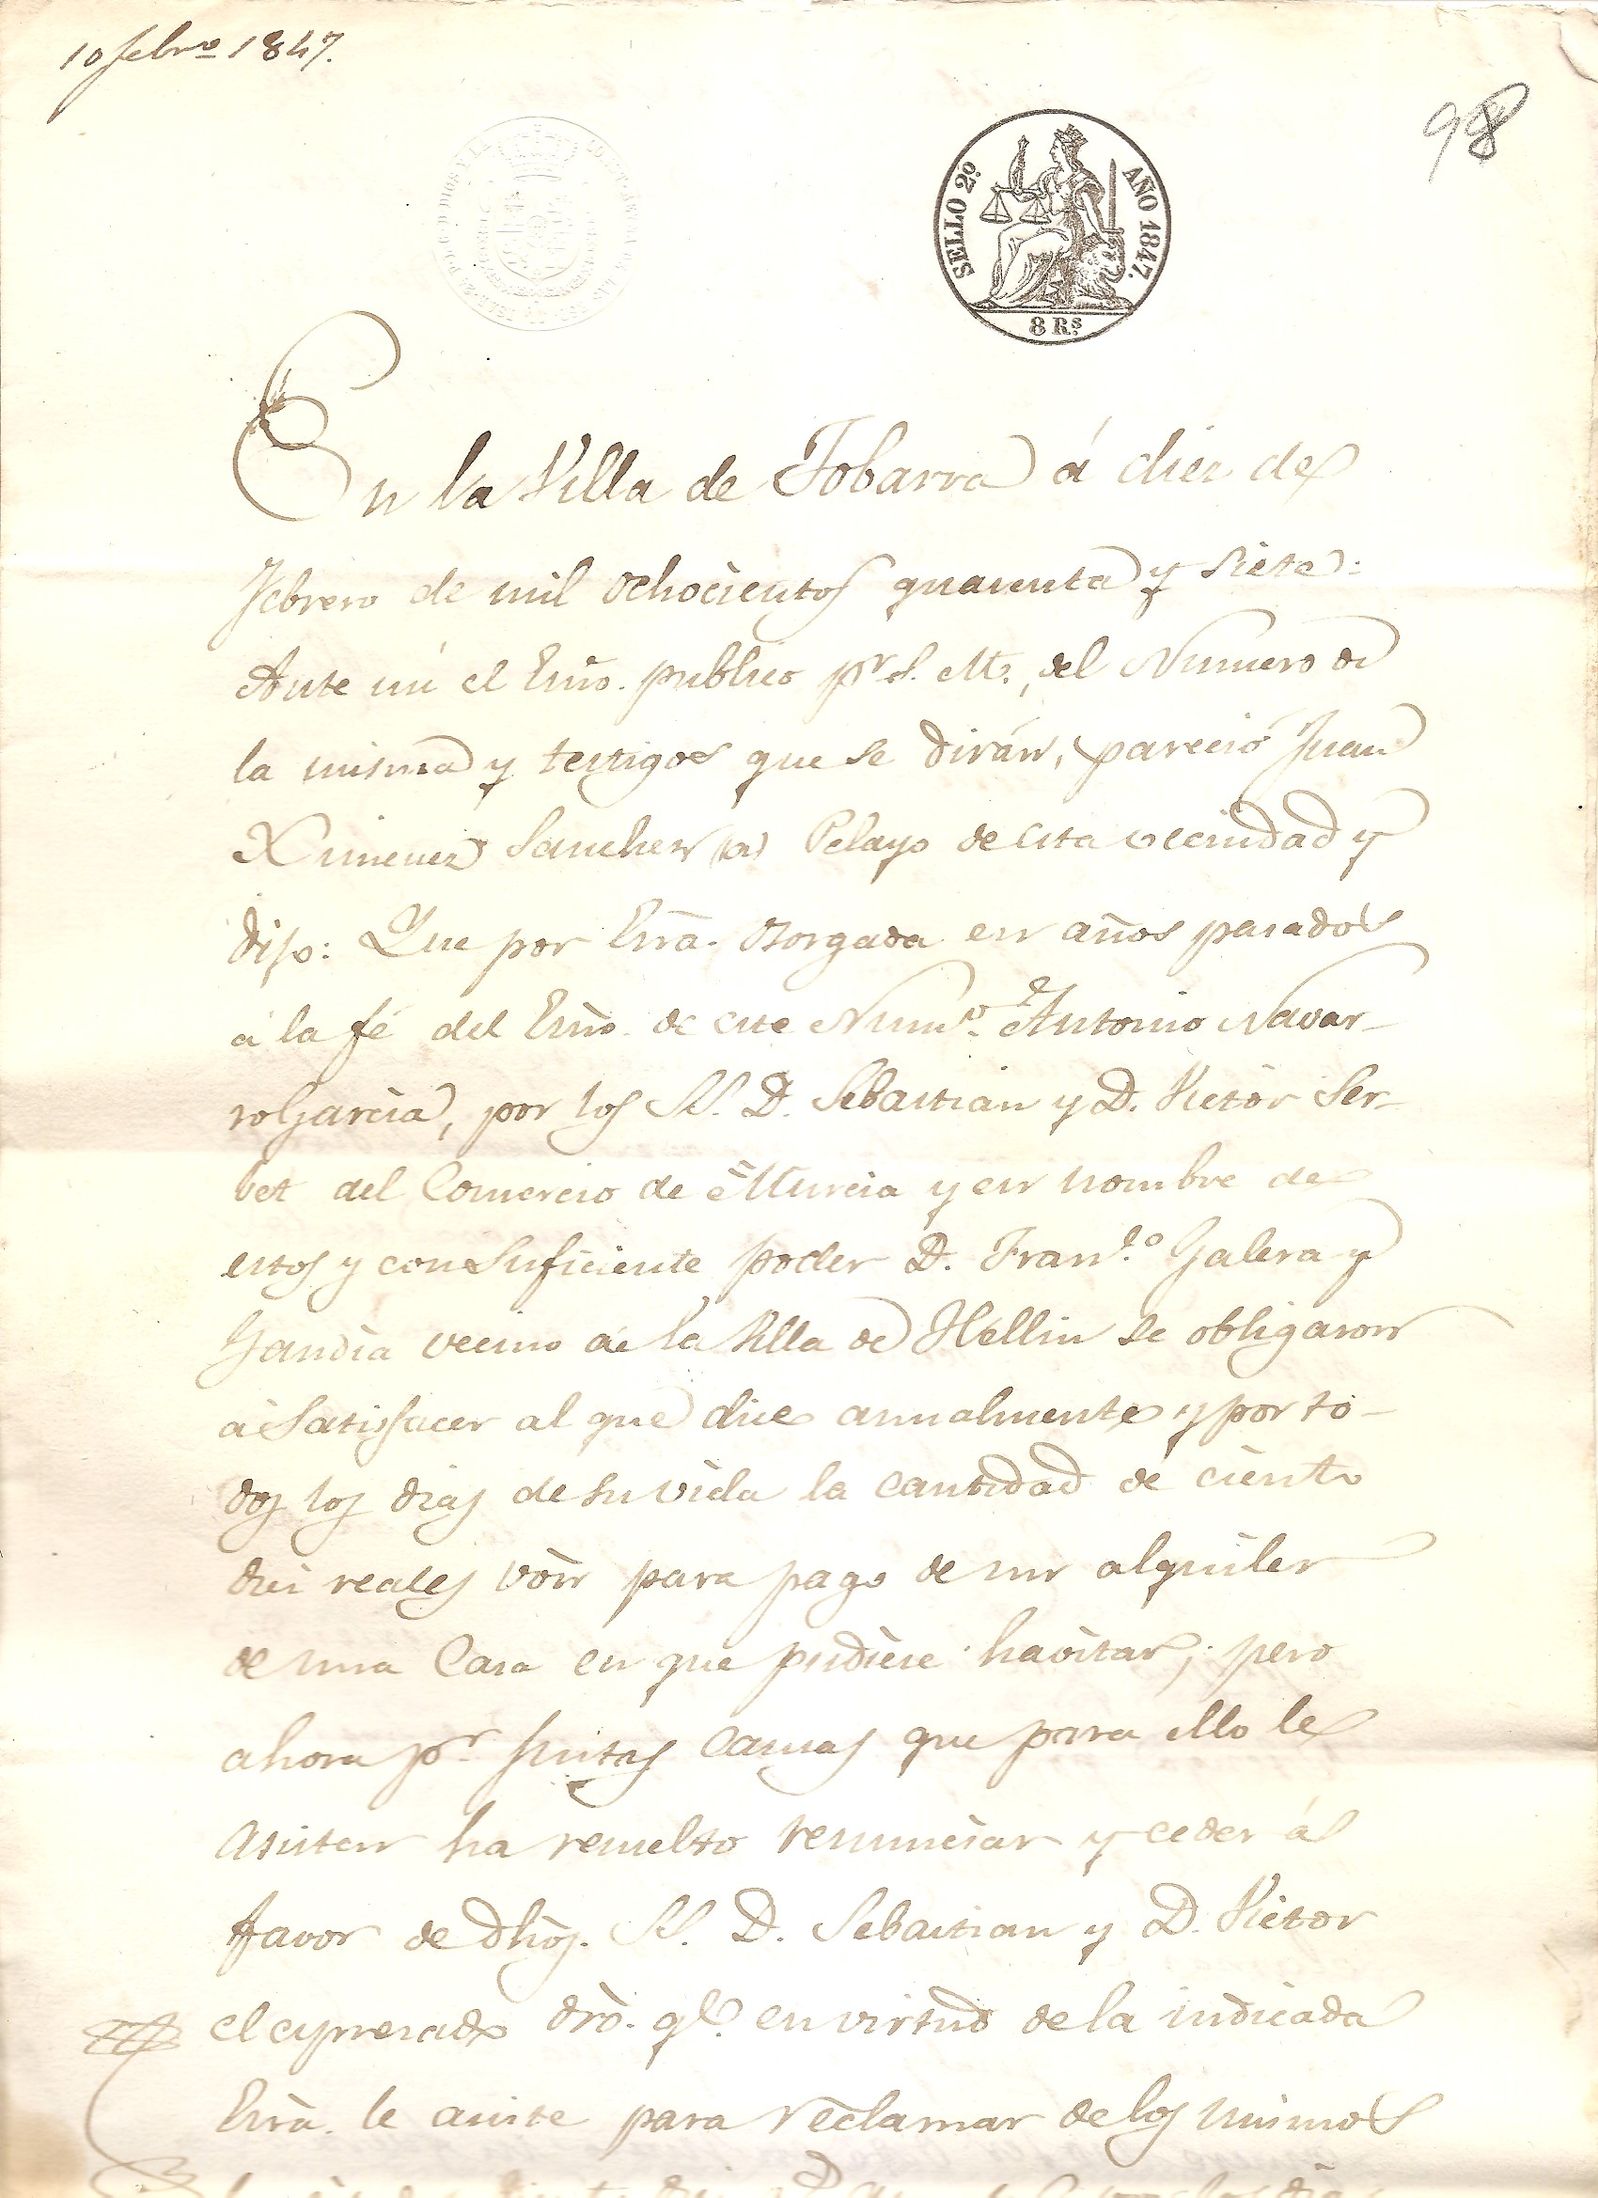 10 febro 1847.
98
SELLO 2º. AÑO 1847.
8 Rs
En la Villa de Tobarra á diez de
Febrero de mil ochocientos quarenta y siete:
Ante mi el Esno. publico pr. S. M., del Numero de
la misma y testigos que se dirán, pareció Juan
Ximenez Sanchez (a) Pelayo de esta vecindad y
dijo: Que por Esra. otorgada en años pasados
á la fé del Esno. de este Numo. Antonio Navar-
ro Garcia, por los SS. D. Sebastian y D. Victor Ser-
vet del Comercio de Murcia y en nombre de
estos y con suficiente poder D. Franco. Galera y
Gandia vecino de la Villa de Hellin se obligaron
á satisfacer al que dice annalmente y por to-
dos los dias de su vida la cantidad de ciento
diez reales von para pago de un alquiler
de una Casa en que pudiese havitar; pero
ahora pr. justas causas que para ello le
asisten ha resuelto renunciar y ceder á
favor de dhos. SS. D. Sebastian y D. Victor
el expresado dro. qe. en virtud de la indicada
Esra. le asiste para reclamar de los mismos